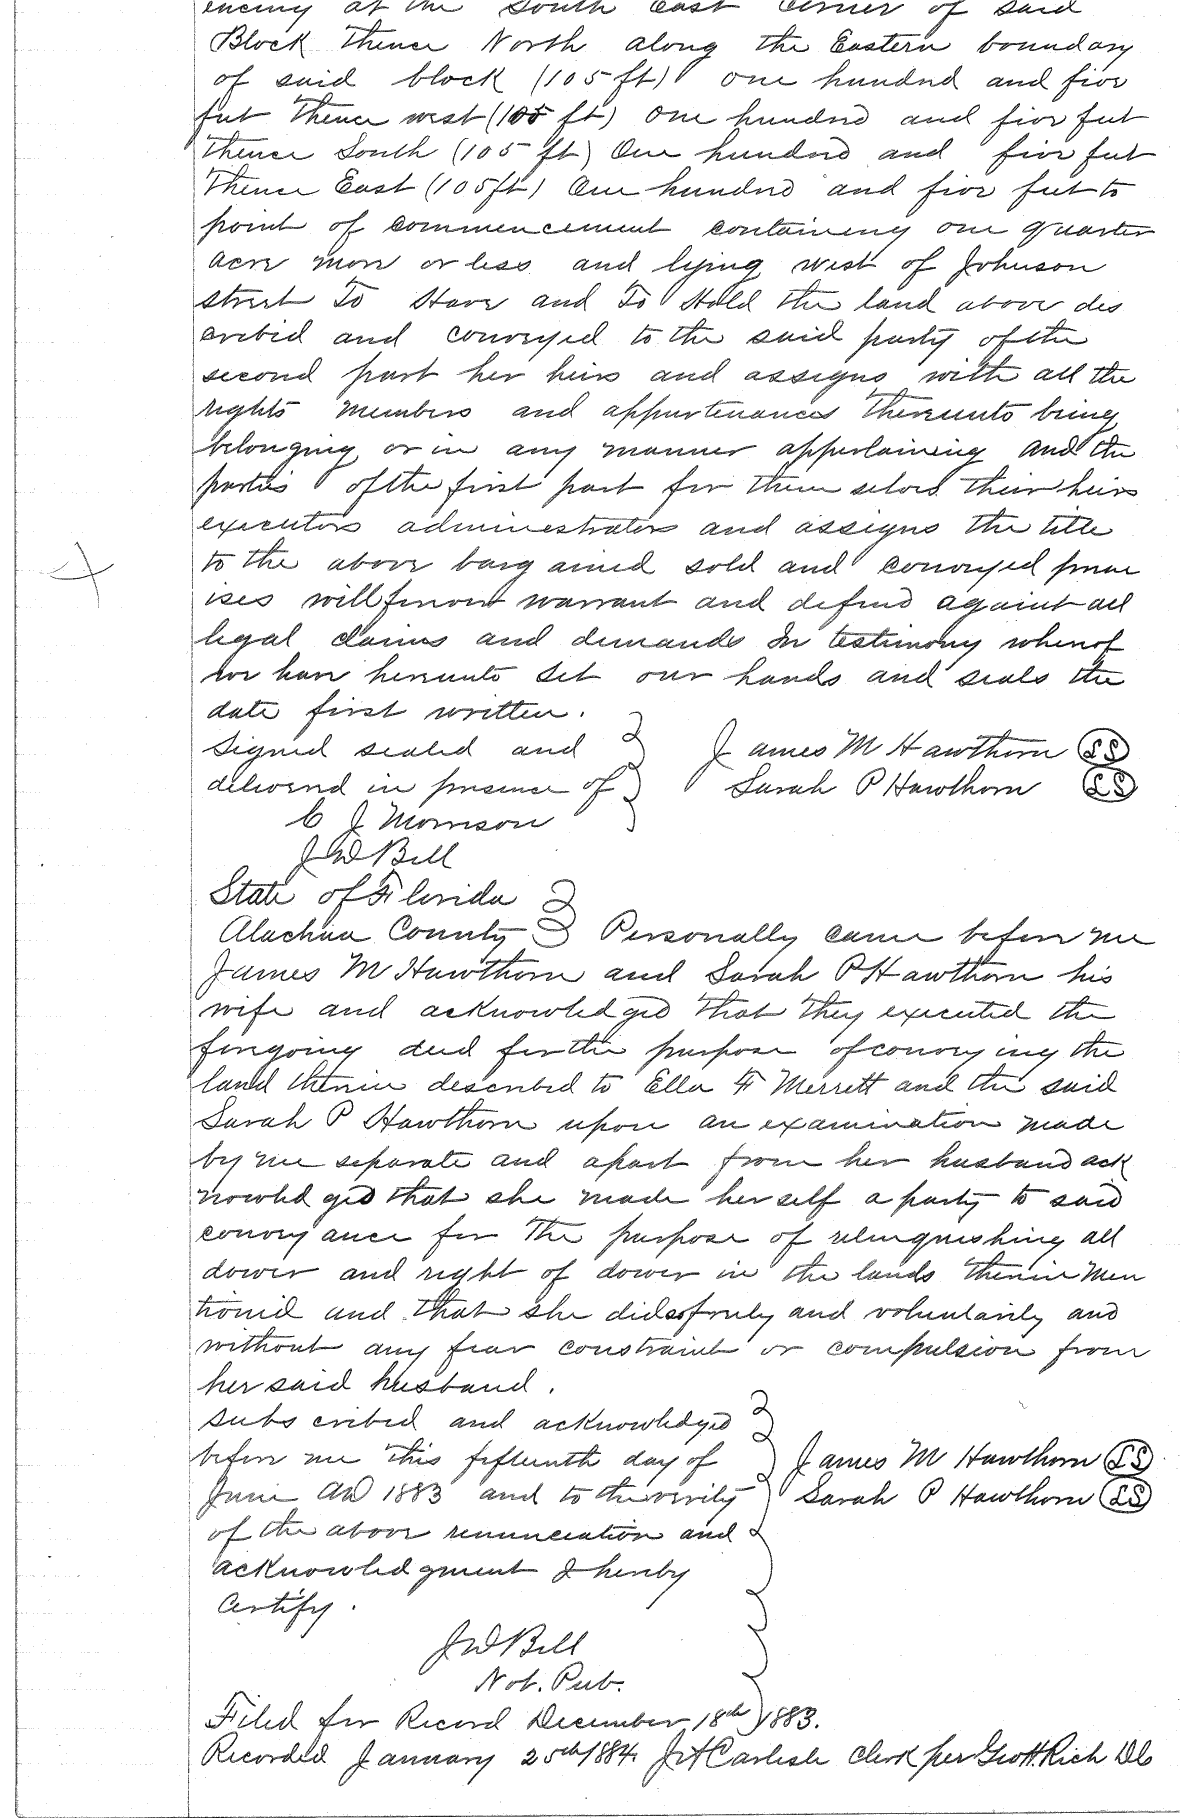 encing at the South East corner of said
Block Thence North along the Eastern boundary
of said block (105 ft) one hundred and five
feet Thence west (105 ft) one hundred and five feet
Thence South (105 ft) One hundred and five feet
Thence East (105 ft) One hundred and five feet to
point of commencement containing one quarter
acre more or less and lying west of Johnson
street To Have and To Hold the land above des
cribed and conveyed to the said party of the
second part her heirs and assigns with all the
rights members and appurtenances Thereunto being
belonging or in any manner appertaining and the
parties of the first part for them selves their heirs
executors administrators and assigns the title
to the above bargained sold and conveyed prem
ises will forever warrant and defend against all
legal claims and demands In testimony whereof
we have hereunto set our hands and seals the
date first written.
Signed sealed and
delivered in presence of
James M Hawthorn LS
Sarah P Hawthorn LS
C J Morrison
J W Bell
State of Florida
Alachua County Personally came before me
James M Hawthorn and Sarah P Hawthorn his
wife and acknowledged That They executed the
foregoing deed for the purpose of conveying the
land therein described to Ella F Merrett and the said
Sarah P Hawthorn upon an examination made
by me separate and apart from her husband ack
nowledged that she made herself a party to said
conveyance for The purpose of relinquishing all
dower and right of dower in the lands Therein Men
tioned and that she did so freely and voluntarily and
without any fear constraint or compulsion from
her said husband.
Subscribed and acknowledged
before me This fifteenth day of
June AD 1883 and to the verity
of the above renunciation and
acknowledgment I hereby
Certify.
James M Hawthorn LS
Sarah P Hawthorn LS
J W Bell
Not. Pub.
Filed for Record December 18th 1883.
Recorded January 25th 1884. J A Carlisle Clerk per Geo H. Rich DC